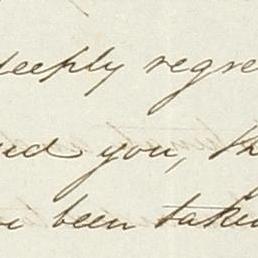 deeply regre
ed you, th
been taken